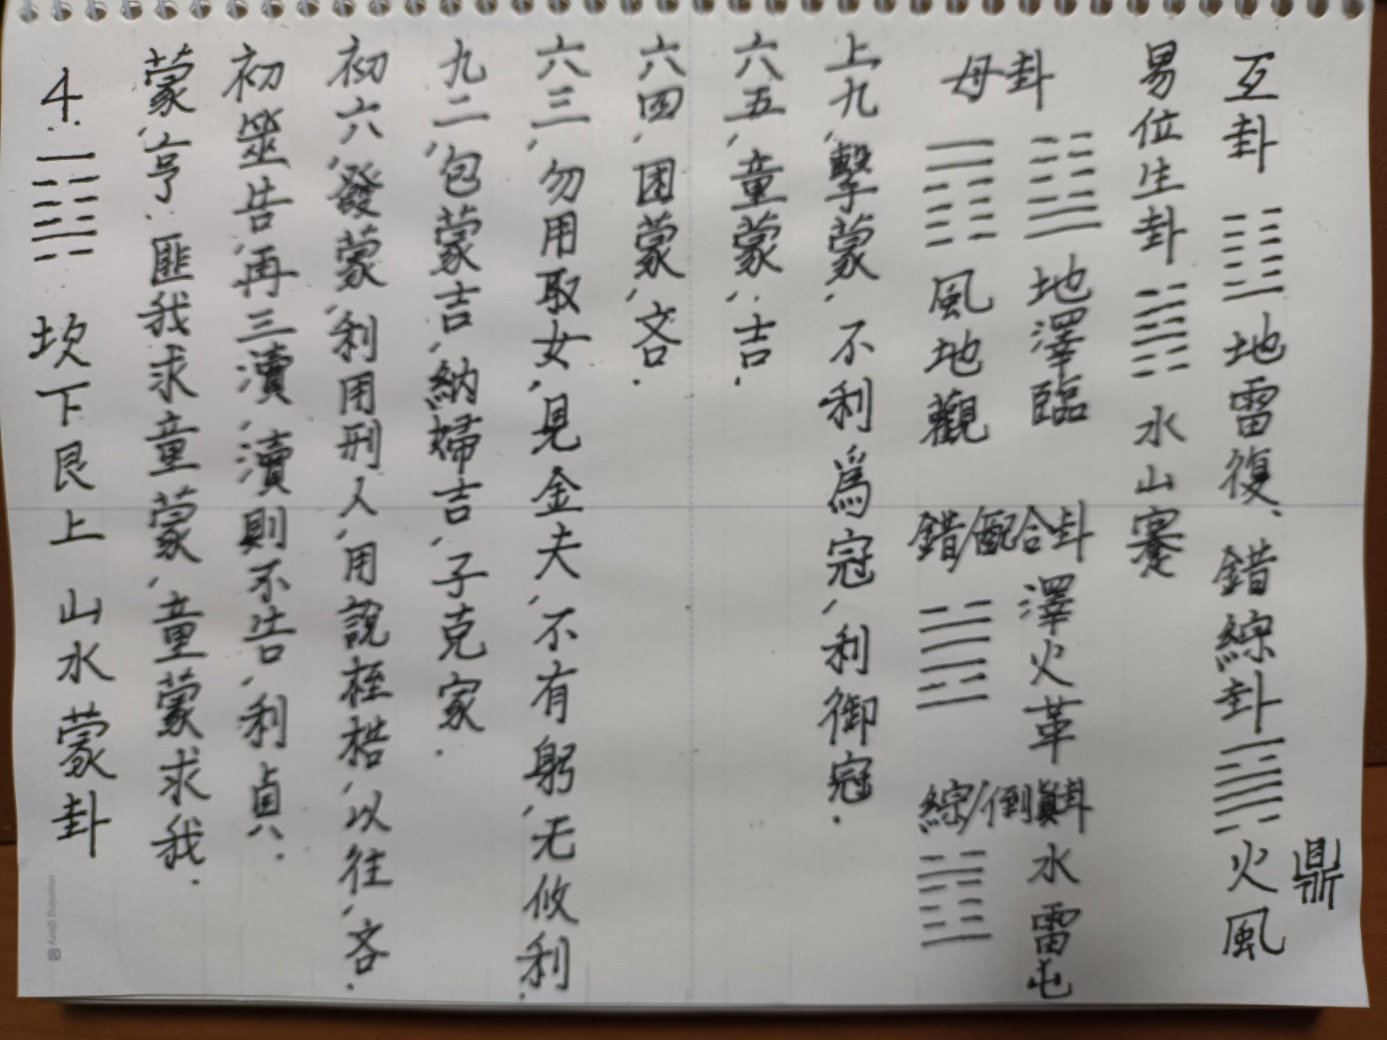 4. ䷃ 坎下艮上 山水蒙卦
蒙,亨. 匪我求童蒙, 童蒙求我.
初筮告,再三瀆,瀆則不告,利貞.
初六,發蒙,利用刑人,用說桎梏,以往,吝.
九二,包蒙吉,納婦吉,子克家.
六三,勿用取女,見金夫,不有躬,无攸利.
六四,困蒙,吝.
六五,童蒙,吉.
上九,擊蒙,不利爲冠,利御冠.
母卦 ䷓ 風地觀 ䷒ 地澤臨 錯/配合卦 ䷰ 澤火革 綜/倒顚卦 ䷂ 水雷屯
易位生卦 ䷦ 水山蹇
互卦 ䷗ 地雷復、錯綜卦 ䷱ 火風鼎
morning glory